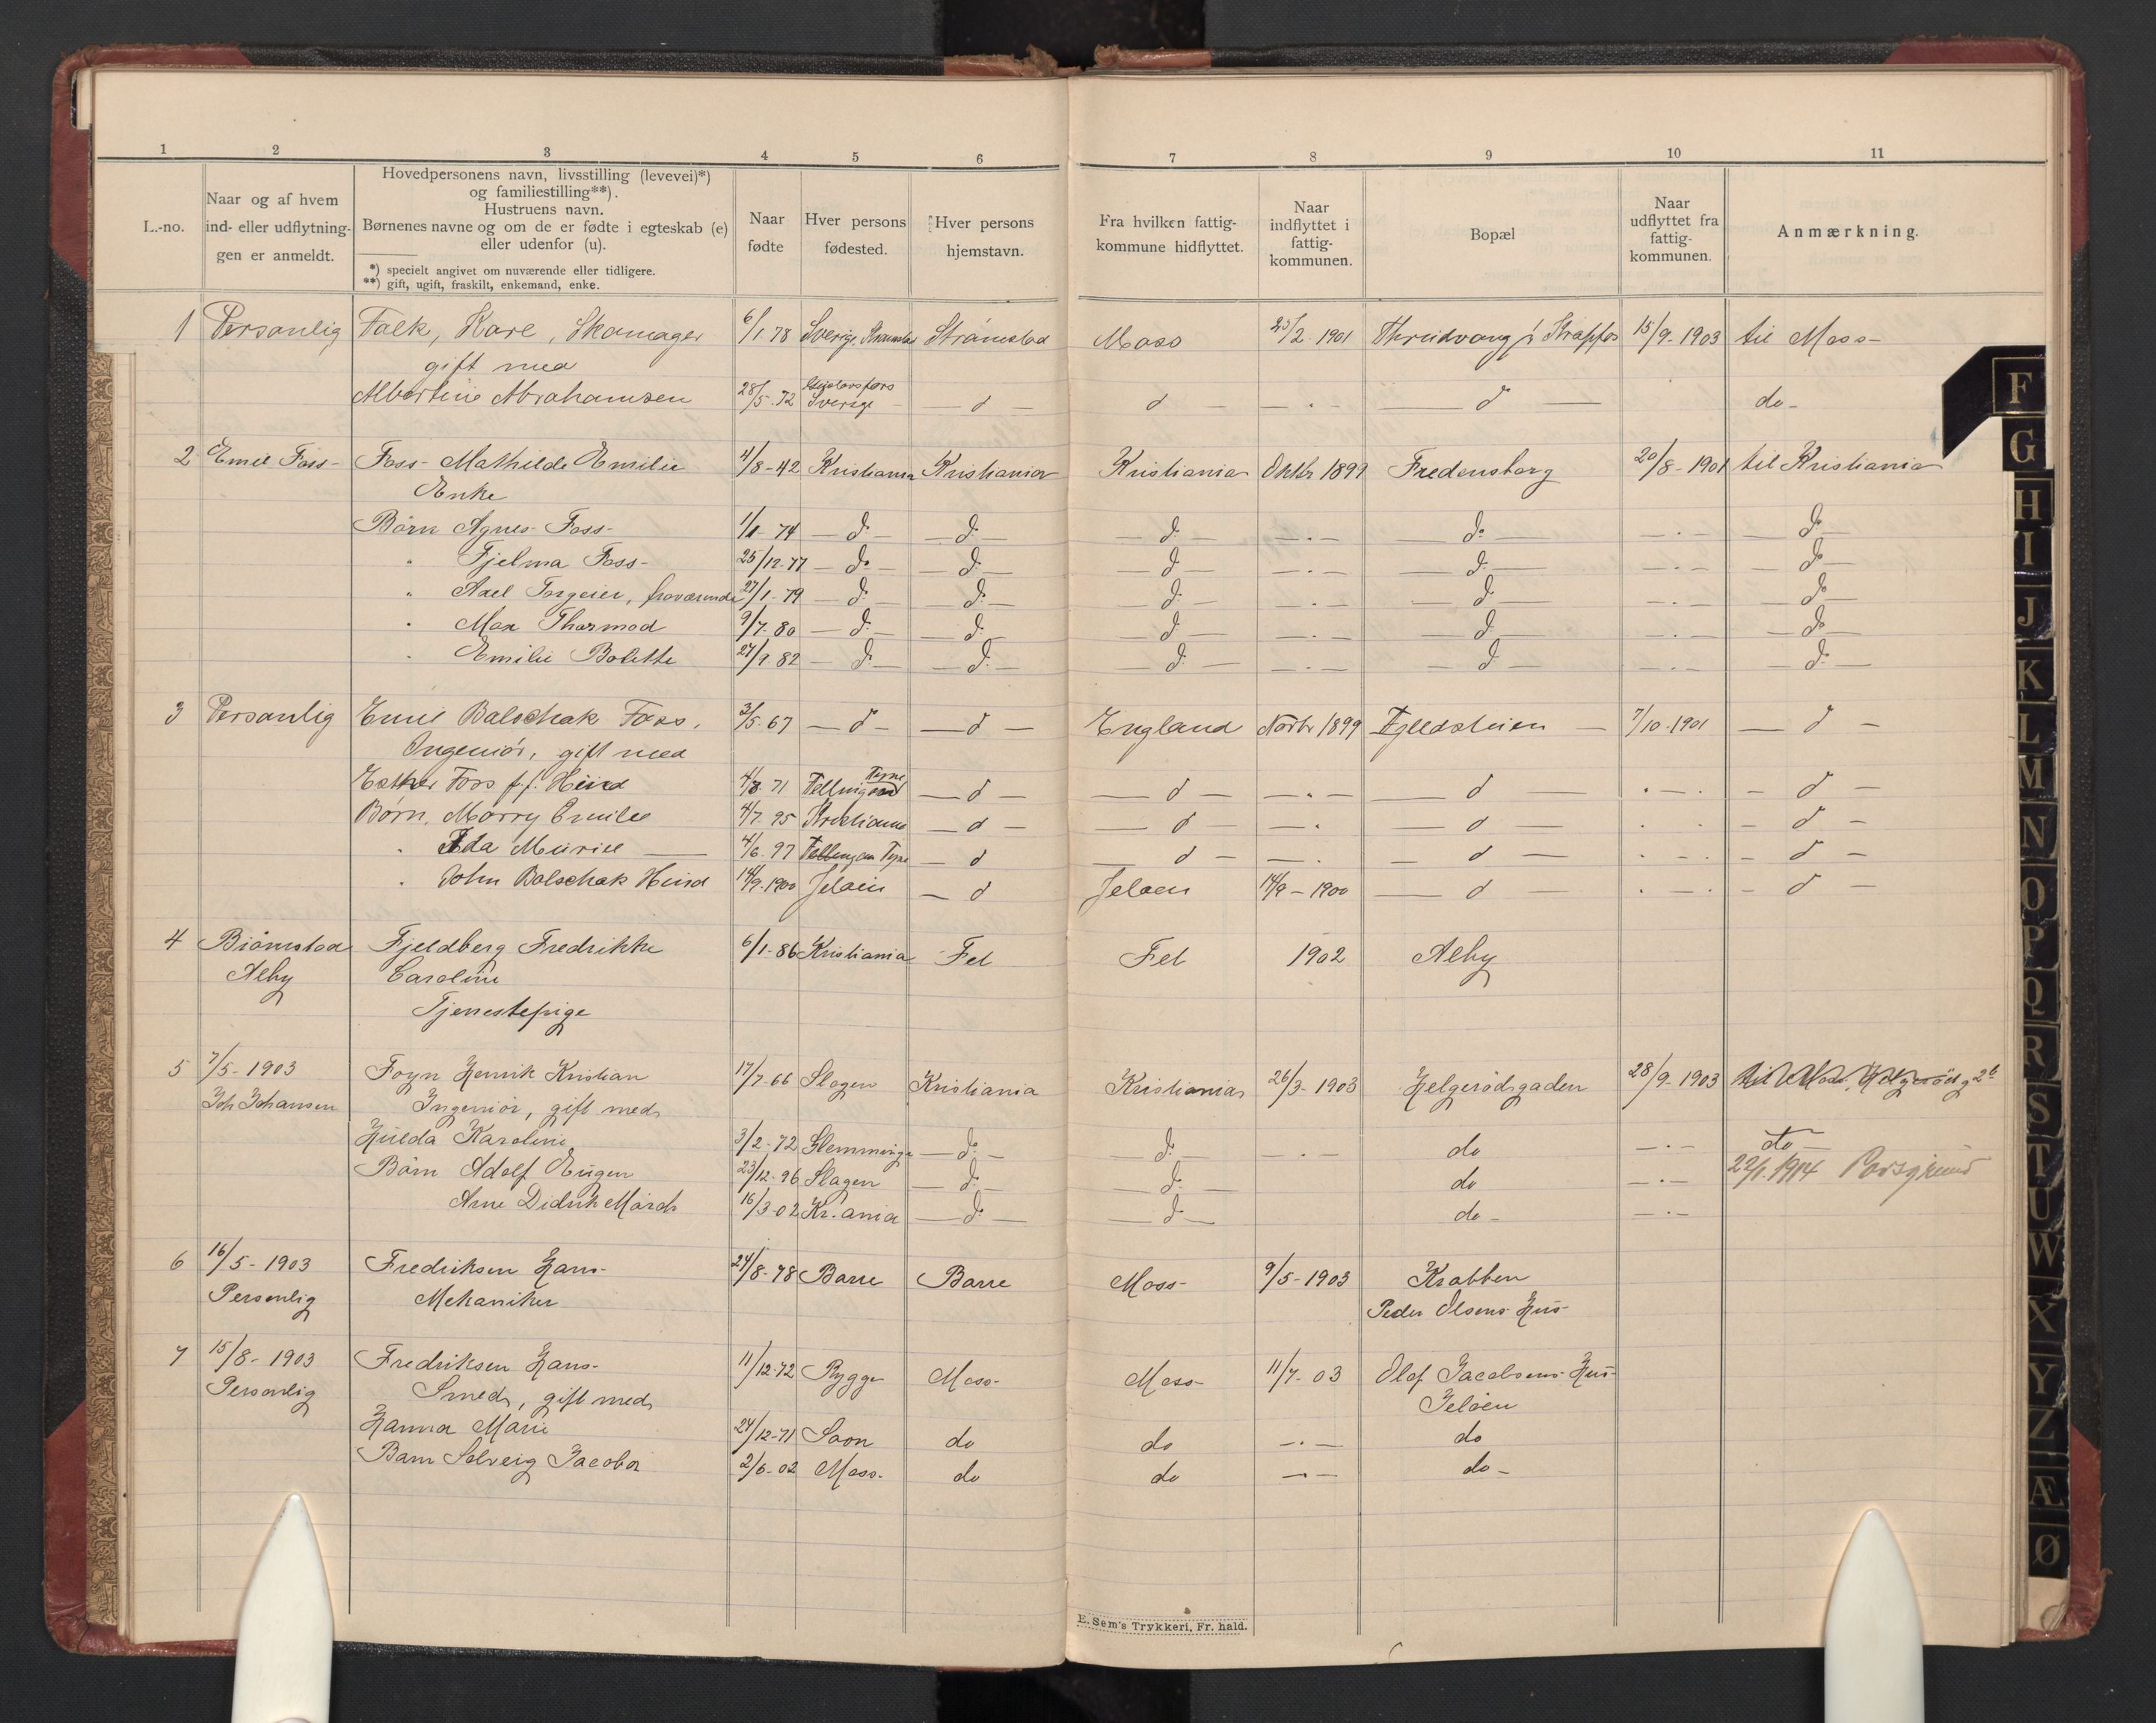 1 2 3 4 5 6 7 8 9 10 11
L.-no.
Naar og af hvem
ind- eller udflytnin-
gen er anmeldt.
Hovedpersonens navn, livsstilling (levevei)*)
og familiestilling**).
Hustruens navn.
Børnenes navne og om de er fødte i egteskab (e)
eller udenfor (u).
*) specielt angivet om nuværende eller tidligere.
**) gift, ugift, fraskilt, enkemand, enke.
Naar
fødte
Hver persons
fødested.
Hver persons
hjemstavn.
Fra hvilken fattig-
kommune hidflyttet.
Naar
indflyttet i
fattig-
kommunen.
Bopæl
Naar
udflyttet fra
fattig-
kommunen.
Anmærkning.
1 Personlig Falk, Kare, Skomager 6/1 78 Sverige Strömstad Moss 25/2 1901 15/9-1903 til Moss-
gift med
Albertine Abrahamsen 28/5.72 Sverige - d - d — . - — d — do-
2 Emil Foss- Foss- Mathilde Emilie 4/8-42 Kristiania Kristiania Kristiania Oktbr 1899 Fredensborg 20/8-1901 til Kristiania
Enke
Börn Agnes Foss- 1/1 74 — do — — do — — do — — . — — do — — . — — do —
" Fjelma Foss- 25/12.77 — do — — do — — do — — . — — do — — . — — do —
" Axel Torgeir, fraværende 27/1-79 — do — — do — — do — — . — — do — — . — — do —
" Max Thormod 9/7.80 — do — — do — — do — — . — — do — — . — — do —
" Emilie Bolette 27/9 82 — do — — do — — do — — . — — do — — . — — do —
3 Personlig Emil Balschak Foss, 3/5.67 — d — — d — England Novbr 1899 Fjeldsteien — 7/10-1901 — d —
Ingeniör, gift med
Esther Foss f.f. Hind 4/8.71 Felling Tyne — d — — d — — . — — d — . — . — d —
Børn, Morry Emilie 4/7.95 Kristiania — d — — d — — . — d — . . — d —
" Ida Muriel — 4/6.97 Fellingon Tyne — d — d — — . — d — . — . — d —
" John Balschak Hind 14/9.1900 Jeløen — d Jeløen 14/9-1900 — d — . — . — d —
4 Björnstad Fjeldberg Fredrikke 6/1-86 Kristiania Fet Fet 1902 Alby
Alby Caroline
Tjenestepige
5 7/5-1903 Foyn Henrik Kristian 17/7-66 Slagen Kristiania Kristiania 26/3-1903 Helgerödgaden 28/9-1903 til Moss, Helgerödg 26
Joh Johansen Ingeniör, gift med
Hulda Karoline 3/2-72 Glemminge — do — — do — — . — do — . — do
Börn Adolf Eugen 23/12-96 Slagen — do — — do — do — . — 22/1.1914 Porsgrund
Arne Didrik Mörch 16/3-02 Kr.ania — do — — do — do- — . —
6 16/5-1903 Fredriksen Hans- 24/8-78 Borre Borre Moss- 9/5-1903 Krabben
Personlig Mekaniker Peder Olsens Hus-
7 15/8-1903 Fredriksen Hans- 11/12-72 Rygge Moss- Moss- 11/7-03 Olof Jacobsens Hus-
Personlig Smed, gift med Jeløen
Hanna Marie 24/12-71 Soon do do — . — do
Barn Solveig Jacoba 2/6-02 Moss- do do — . — do-
E. Sem's Trykkeri, Fr. hald.
F
G
H
I
J
K
L
M
N
O
P
Q
R
S
T
U
W
X
Y
Z
Æ
Ø